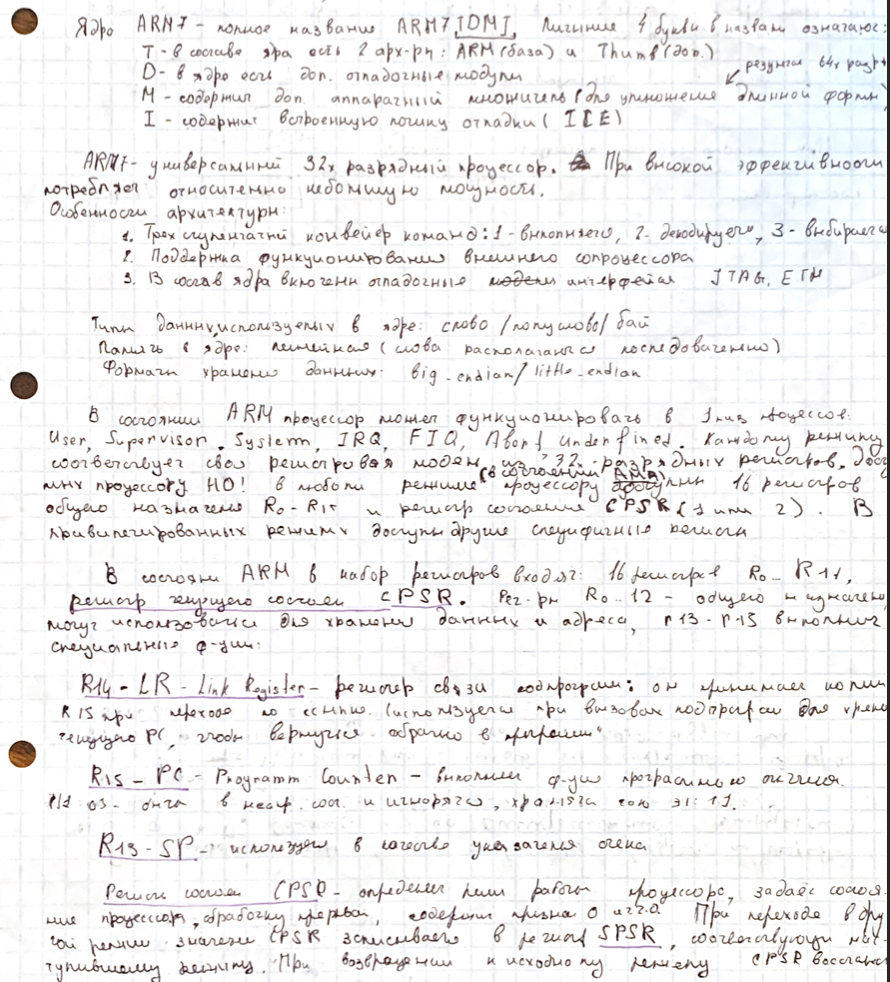 Ядро ARM7 - полное название ARM7TDMI. Лишние 4 буквы в названи означают:
T - в составе ядра есть 2 арх-ры: ARM (база) и Thumb (доп.)
D - в ядре есть доп. отладочные модули
результат 64х разр
M - содержит доп. аппаратный множитель (для умножения длинной формы)
I - содержит встроенную логику отладки (ICE)
ARM7 - универсальный 32х разрядный процессор. При высокой эффективности
потребляет относительно небольшую мощность.
Особенности архитектуры:
1. Трехступенчатый конвейер команд: 1 - выполняется, 2 - декодируется, 3 - выбирается
2. Поддержка функционирования внешнего сопроцессора
3. В состав ядра включены отладочные интерфейсы JTAG, ETM
Типы данных, используемых в ядре: слово / полуслово / байт
Память в ядре: линейная (слова располагаются последовательно)
Форматы хранения данных: big_endian / little_endian
В состоянии ARM процессор может функционировать в 1 из процессов:
User, Supervisor, System, IRQ, FIQ, Abort, Underfined. Каждому режиму
соответствует своя регистровая модель из 32-разрядных регистров, дост
ных процессору НО! в любом режиме (в состоянии АРМ) процессору доступны 16 регистров
общего назначения R0 - R15 и регистр состояния CPSR (1 или 2). В
привилегированных режимах доступны другие специфичные регистры
В состояни ARM в набор регистров входят: 16 регистров R0...
регистр текущего состоян CPSR. Рег-ры R0..12 - общего назначения
могут использоваться для хранения данных и адреса, r13 - r15 выполняют
специальные ф-ции:
R14 - LR - Link Register - регистр связи подпрограмм: он принимает копию
R15 при переходе по ссылке. (используется при вызовах подпрограмм для хране
текущего PC, чтобы вернуться обратно в программу
R15 - PC - Programm Counter - выполняет ф-цию программного счетчика
в и игнорятся,
R13 - SP - используем в качестве указателя стека
Регистр состоян CPSR - определяет режим работы процессора, задаёт состоя-
ние процессора, обработку прерыван, содержит признак О и т.д. При переходе в дру
гой режим значени CPSR записывается в регистр SPSR, соответствующи нас-
тупившему режиму. При возвращении к исходному режиму CPSR восстана